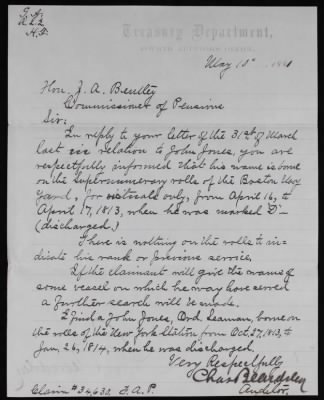 Treasury Department,
FOURTH AUDITOR'S OFFICE,
May 18", 1881
Hon. J. A. Bentley
Commissioner of Pensions
Sir:
In reply to your letter of the 31st of March
last in relation to John Jones, you are
respectfully informed that his name is borne
on the supernumerary rolls of the Boston Navy
Yard, for only, from April 16, to
April 17, 1813, when he was marked "D"
(discharged.)
There is nothing on the rolls to in=
dicate his rank or previous service.
If the claimant will give the names of
some vessel on which he may have served
a further search will be made.
I find a John Jones, Ord. Seaman, borne on
the rolls of the New York Station from Oct. 27, 1813, to
Jan. 26, 1814, when he was discharged.
Very Respectfully
Chas Beardsley
Auditor.
Claim # 34,633. J.A.P.